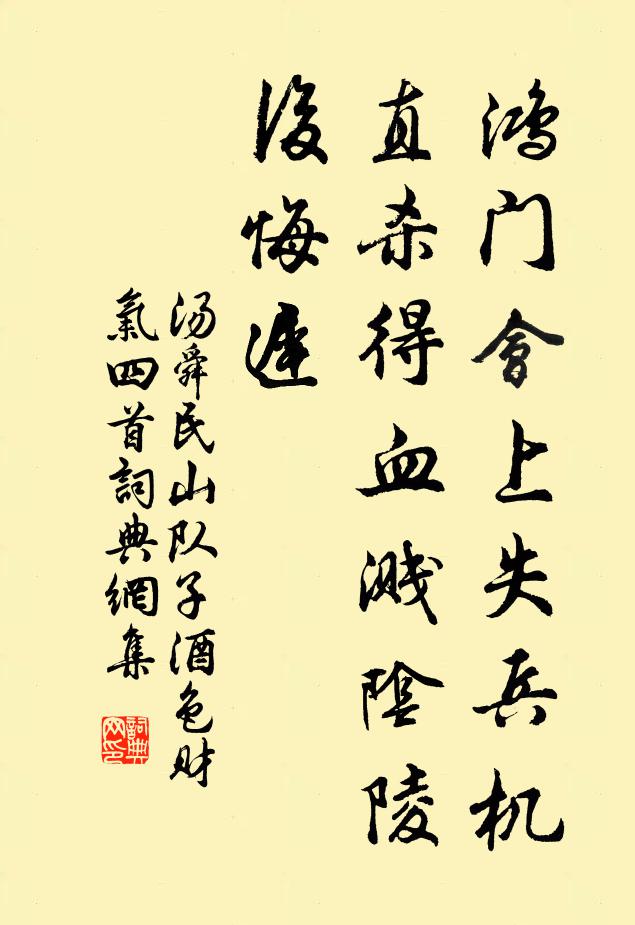 鸿门會上失兵机
直杀得血溅陰陵
後悔遲
汤舜民山队子酒色财
氣四首詞典網集
詞典
网印